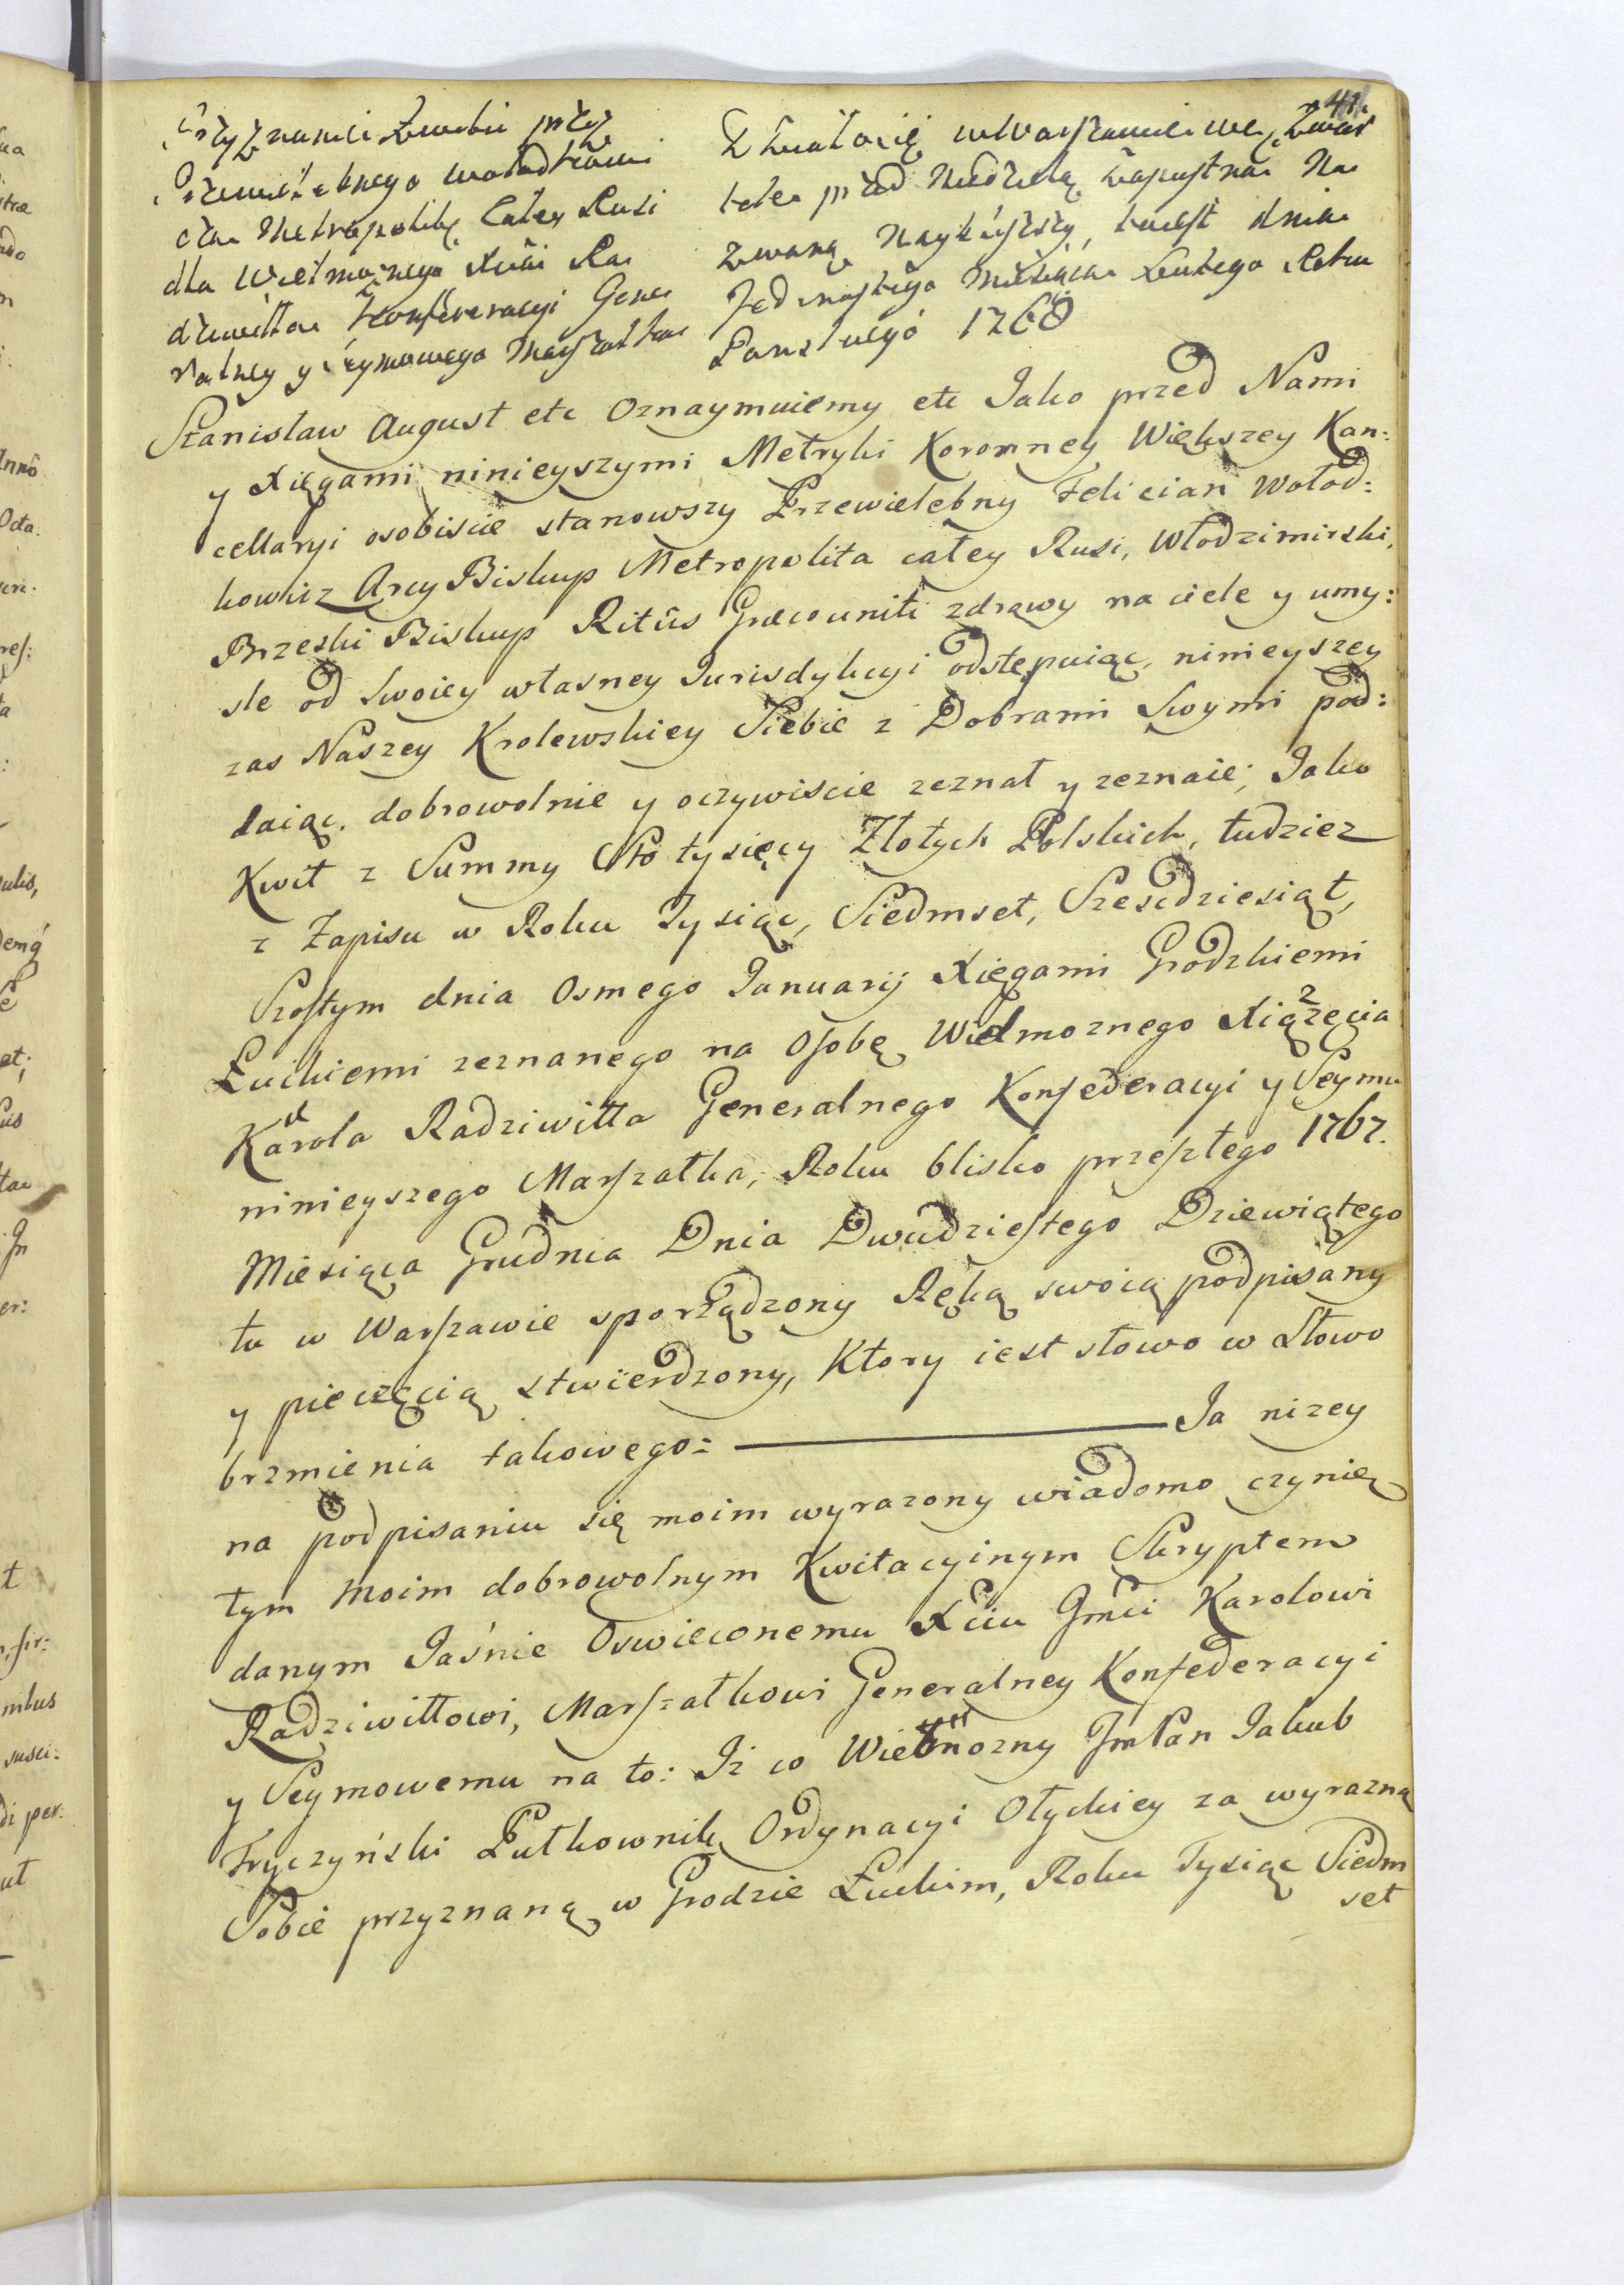 41.
Przyznanie Kwitu przez
Przewielebnego Wołodkowi
cza Metropolitę Całey Rusi
dla Wielmożnego Xcia Ra
dziwiłła Konfederacyi Gene
ralney y Seymowego Marszałka
Działo się w Warszawie we Czwar
tek przed Niedzielą Zapustną Na
zwaną , to iest dnia
Jedenastego Miesiąca Lutego Roku
Pańskiego 1768
Stanisław August etc Oznaymuiemy etc Jako przed Nami
y Xięgami ninieyszymi Metryki Koronney Większey Kan:
cellaryi osobiscie stanowszy Przewielebny Felician Wołod:
kowicz Arcy Biskup Metropolita całey Rusi, Włodzimirski,
Brzeski Biskup Ritûs Græcouniti zdrowy na ciele y umy:
sle od Swoiey własney Jurisdykcyi odstępuiąc, ninieyszey
zas Naszey Krolewskiey Siebie z Dobrami Swymi pod:
daiąc, dobrowolnie y oczywiscie zeznał y zeznaie; Jako
Kwit z Summy Sto tysięcy Złotych Polskich, tudziez
z Zapisu w Roku Tysiąc, Siedmset, Szescdziesiąt,
Szostym dnia Osmego Januarij Xięgami Grodzkiemi
Łuckiemi zeznanego na Osobę Wielmoznego Xiązęcia
Karola Radziwiłła Generalnego Konfederacyi y Seymu
ninieyszego Marszałka, Roku blisko przeszłego 1767.
Miesiąca Grudnia Dnia Dwudziestego Dziewiątego
tu w Warszawie sporządzony Ręką swoią podpisany
y pieczęcią stwierdzony, Ktory iest słowo w Słowo
brzmienia takowego: ——— Ja nizey
na podpisaniu się moim wyrazony wiadomo czynię
tym moim dobrowolnym Kwitacyinym Skryptem
danym Jaśnie Oswieconemu Xciu Jmci Karolowi
Radziwiłłowi, Marszałkowi Generalney Konfederacyi
y Seymowemu na to: Iz co Wielmozny JmPan Jakub
Fryczyński Pułkownik Ordynacyi Ołyckiey za wyrazną
Sobie przyznaną w Grodzie Łuckim, Roku Tysiąc Siedm
set